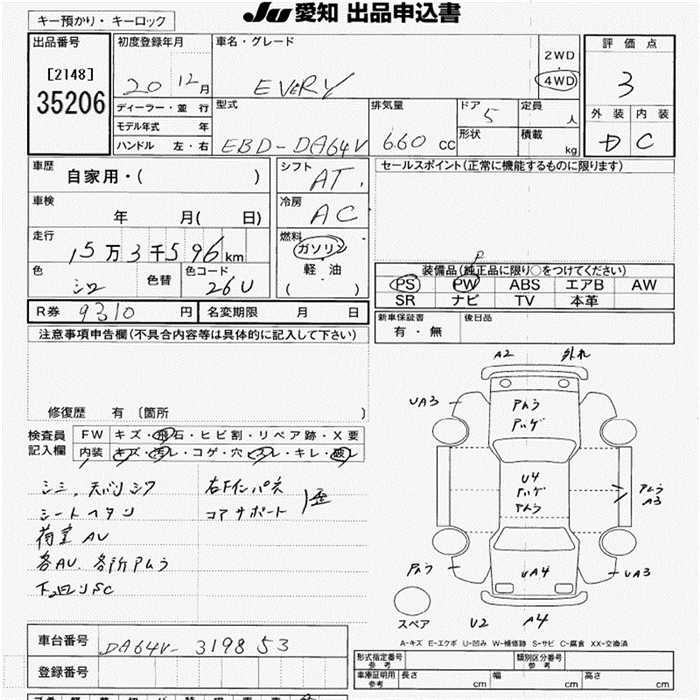 JU 愛知 出品申込書
キー預かり・キーロック
出品番号
[2148]
35206
初度登録年月
20 12月
車名・グレード
EVERY
2WD
4WD
評価点
3
外装 内装
D C
ディーラー・並行
モデル年式 年
ハンドル 左・右
型式
EBD-DA64V
排気量
660 cc
ドア
5
形状
定員
人
積載
kg
車歴
自家用・( )
シフト
AT
セールスポイント(正常に機能するものに限ります)
車検
年 月( 日)
冷房
AC
走行
15万3千596km
燃料
ガソリン
軽・油
( )
色
シロ
色替
色コード
26U
装備品(純正品に限り○をつけてください)
P
PS PW ABS エアB AW
SR ナビ TV 本革
R券 9310 円
名変期限 月 日
新車保証書
有・無
後日品
注意事項申告欄(不具合内容等は具体的に記入して下さい)
修復歴 有 〔箇所 〕
検査員
記入欄
FW キズ・飛石・ヒビ割・リペア跡・X要
内装 キズ・汚レ・コゲ・穴・スレ・キレ・破レ
シミ、天バリシワ
シートヘタリ
荷室AU
各AU、各所アムラ
下回りSC
右Fインパネ
コアサポート
歪
A2 外れ
UA3
アムラ
アハゲ
U4
アハゲ
アムラ
アムラ
A3
アムラ
UA4
UA3
スペア
U2 A4
A-キズ E-エクボ U-凹み W-補修跡 S-サビ C-腐食 XX-交換済
車台番号 DA64V-319853
登録番号
形式指定番号
参考
類別区分番号
参考
車庫証明用
参考
長さ cm 幅 cm 高さ cm